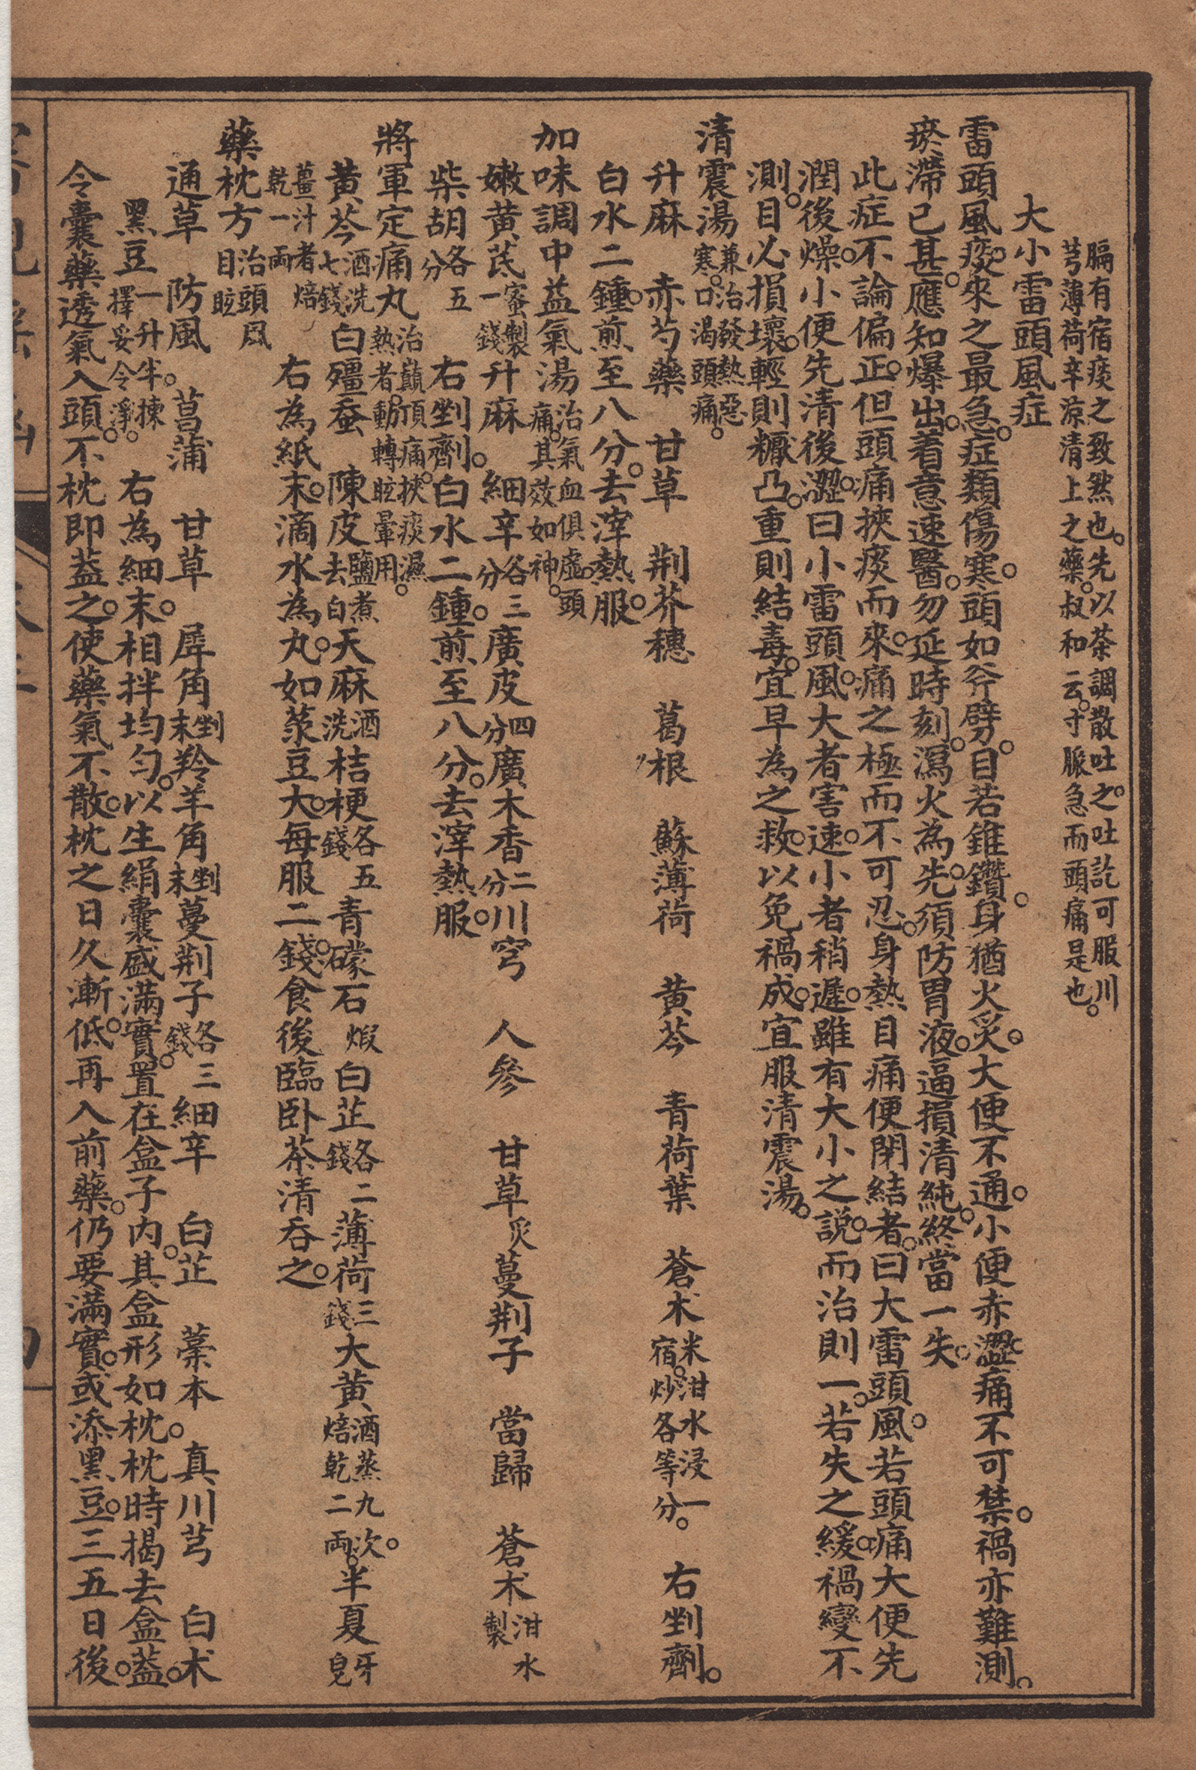 膈有宿痰之致然也。先以茶調散吐之。吐訖可服川
芎薄荷辛涼清上之藥。叔和云。寸脈急而頭痛是也。
大小雷頭風症
雷頭風。痰來之最急。症類傷寒。頭如斧劈。目若錐鑽。身猶火炙。大便不通。小便赤澀。痛不可禁。禍亦難測。
瘀滯已甚。應知爆出。着意速醫。勿延時刻。瀉火為先。須防胃液。逼損清純。終當一失。
此症不論偏正。但頭痛挾痰而來。痛之極而不可忍。身熱目痛便閉結者。曰大雷頭風。若頭痛大便先
潤後燥。小便先清後澀。曰小雷頭風。大者害速。小者稍遲。雖有大小之說。而治則一。若失之緩。禍變不
測。目必損壞。輕則䊠凸。重則結毒。宜早為之救。以免禍成。宜服清震湯。
清震湯 兼治發熱惡寒。口渴頭痛。
升麻 赤芍藥 甘草 荆芥穗 葛根 蘇薄荷 黃芩 青荷葉 蒼朮米泔水浸一宿。炒各等分。 右剉劑。
白水二鍾。煎至八分。去滓熱服。
加味調中益氣湯 治氣血俱虛。頭痛。其效如神。
嫩黃芪蜜製一錢 升麻 細辛各三分 廣皮四分 廣木香二分 川芎 人參 甘草炙 蔓荆子 當歸 蒼朮泔水製
柴胡各五分 右剉劑。白水二鍾。煎至八分。去滓熱服。
將軍定痛丸 治巔頂痛。挾痰濕熱者。動轉眩暈用。
黃芩酒洗七錢 白殭蚕 陳皮鹽煮去白 天麻酒洗 桔梗各五錢 青礞石煆 白芷各二錢 薄荷三錢 大黃酒蒸九次。焙乾二兩。半夏牙皂
薑汁者焙乾一兩 右為紙末。滴水為丸。如菉豆大。每服二錢。食後臨卧茶清吞之。
藥枕方 治頭風目眩
通草 防風 菖蒲 甘草 犀角剉末 羚羊角剉末 蔓荆子各三錢 細辛 白芷 藁本 真川芎 白朮
黑豆一升半。揀擇妥令淨。 右為細末。相拌均勻。以生絹囊盛滿實。置在盒子內。其盒形如枕。枕時揭去盒蓋。
令囊藥透氣入頭。不枕即蓋之。使藥氣不散。枕之日久漸低。再入前藥。仍要滿實。或添黑豆。三五日後。